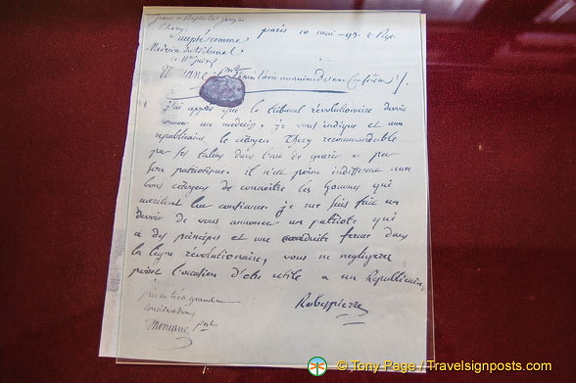 accepté comme paris 10 mai -93-
Médecin du Tribunal
le 11
j'ai appris que le tribunal révolutionaire devoit
nommer un médecin. je vous indique et un
republicain le citoyen Thery recommandable
par ses talens dans l'art de guerir et par
son patriotisme. il n'est point indifferent aux
bons citoyens de connoitre les hommes qui
méritent leur confiance. je me suis fait un
devoir de vous annoncer un patriote qui
a des principes et une conduite ferme dans
la ligne révolutionaire, vous ne negligerez
point l'occasion d'etre utile a un Republicain,
Robespierre
consideration
Montané
© Tony Page / Travelsignposts.com